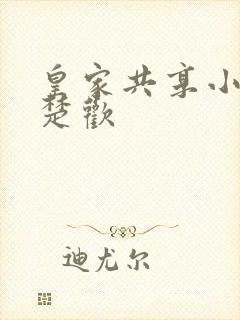 皇家共享小
楚歡
迪尤尔